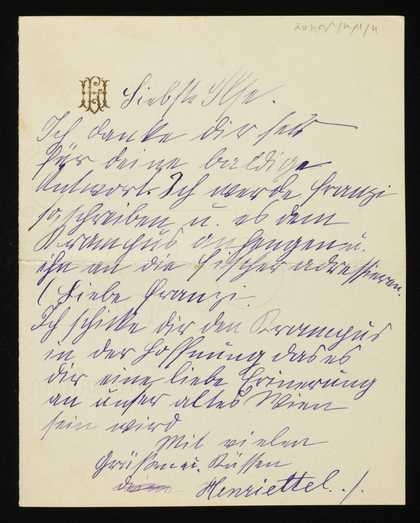 Liebste Ilse.
Ich danke dir sehr
für deine baldige
Antwort. Ich werde Franzi
so schreiben u. es dem
Krampus anhengen u.
ihn an die Fischer adressieren.
(Liebe Franzi.
Ich schicke dir den Krampus
in der Hoffnung das es
dir eine liebe Erinerung
an unser altes Wien
sein wird
Mit vielen
Grüßen u. Küssen
Henriettel./.